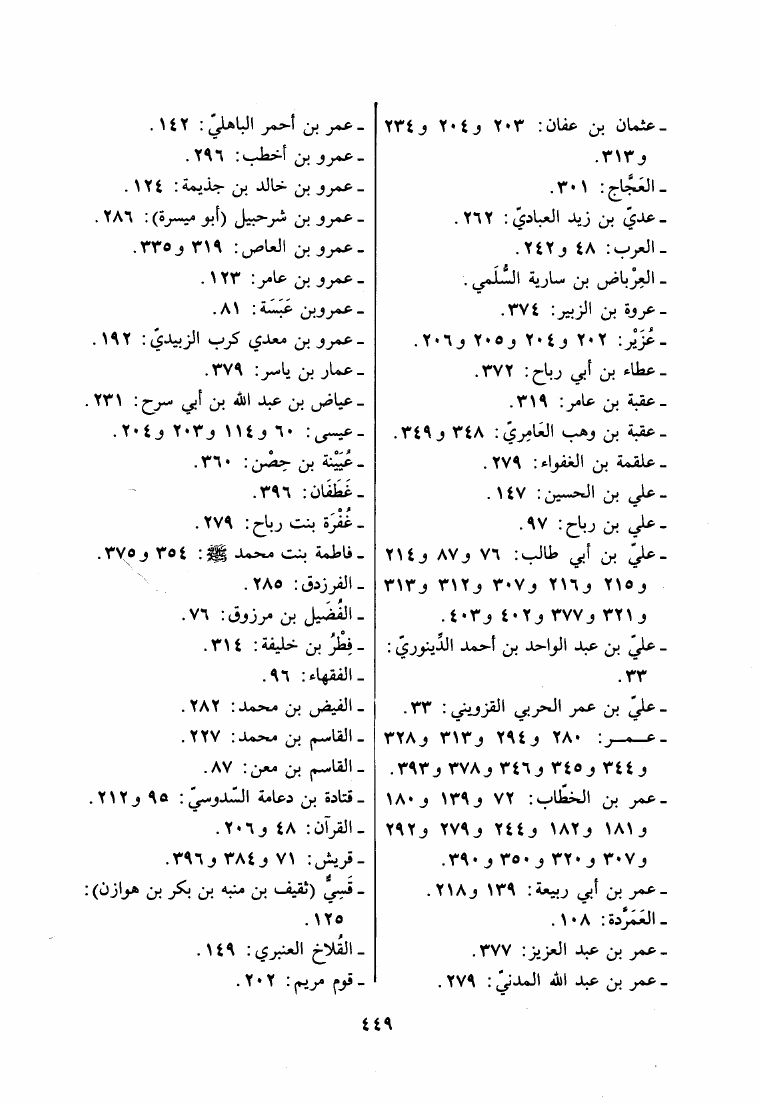 ـ عثمان بن عفان: ٢٠٣ و٢٠٤ و٢٣٤
و٣١٣.
ـ العَجَّاج: ٣٠١.
ـ عديّ بن زيد العباديّ: ٢٦٢.
ـ العرب: ٤٨ و٢٤٢.
ـ العِرْباض بن سارية السُّلَمي.
ـ عروة بن الزبير: ٣٧٤.
ـ عُزَيْر: ٢٠٢ و٢٠٤ و٢٠٥ و٢٠٦.
ـ عطاء بن أبي رباح: ٣٧٢.
ـ عقبة بن عامر: ٣١٩.
ـ عقبة بن وهب العَامِريّ: ٣٤٨ و٣٤٩.
ـ علقمة بن الغفواء: ٢٧٩.
ـ علي بن الحسين: ١٤٧.
ـ علي بن رباح: ٩٧.
ـ عليّ بن أبي طالب: ٧٦ و٨٧ و٢١٤
و٢١٥ و٢١٦ و٣٠٧ و٣١٢ و٣١٣
و٣٢١ و٣٧٧ و٤٠٢ و٤٠٣.
ـ عليّ بن عبد الواحد بن أحمد الدِّينوريّ:
٣٣.
ـ عليّ بن عمر الحربي القزويني: ٣٣.
ـ عـمـر: ٢٨٠ و٢٩٤ و٣١٣ و٣٢٨
و٣٤٤ و٣٤٥ و٣٤٦ و٣٧٨ و٣٩٣.
ـ عمر بن الخطّاب: ٧٢ و١٣٩ و١٨٠
و١٨١ و١٨٢ و٢٤٤ و٢٧٩ و٢٩٢
و٣٠٧ و٣٢٠ و٣٥٠ و٣٩٠.
ـ عمر بن أبي ربيعة: ١٣٩ و٢١٨.
ـ العَمَرَّدة: ١٠٨.
ـ عمر بن عبد العزيز: ٣٧٧.
ـ عمر بن عبد الله المدنيّ: ٢٧٩.
ـ عمر بن أحمر الباهليّ: ١٤٢.
ـ عمرو بن أخطب: ٢٩٦.
ـ عمرو بن خالد بن جذيمة: ١٢٤.
ـ عمرو بن شرحبيل (أبو ميسرة): ٢٨٦.
ـ عمرو بن العاص: ٣١٩ و٣٣٥.
ـ عمرو بن عامر: ١٢٣.
ـ عمروبن عَبَسَة: ٨١.
ـ عمرو بن معدي كرب الزبيديّ: ١٩٢.
ـ عمار بن ياسر: ٣٧٩.
ـ عياض بن عبد الله بن أبي سرح: ٢٣١.
ـ عيسى: ٦٠ و١١٤ و٢٠٣ و٢٠٤.
ـ عُيَيْنة بن حِصْن: ٣٦٠.
ـ غَطَفَان: ٣٩٦.
ـ غُفْرَة بنت رباح: ٢٧٩.
ـ فاطمة بنت محمد ﷺ: ٣٥٤ و٣٧٥.
ـ الفرزدق: ٢٨٥.
ـ الفُضَيل بن مرزوق: ٧٦.
ـ فِطْرُ بن خليفة: ٣١٤.
ـ الفقهاء: ٩٦.
ـ الفيض بن محمد: ٢٨٢.
ـ القاسم بن محمد: ٢٢٧.
ـ القاسم بن معن: ٨٧.
ـ قتادة بن دعامة السّدوسيّ: ٩٥ و٢١٢.
ـ القرآن: ٤٨ و٢٠٦.
ـ قريش: ٧١ و٣٨٤ و٣٩٦.
ـ قَسِيٌّ (ثقيف بن منبه بن بكر بن هوازن):
١٢٥.
ـ القُلاخ العنبري: ١٤٩.
ـ قوم مريم: ٢٠٢.
٤٤٩